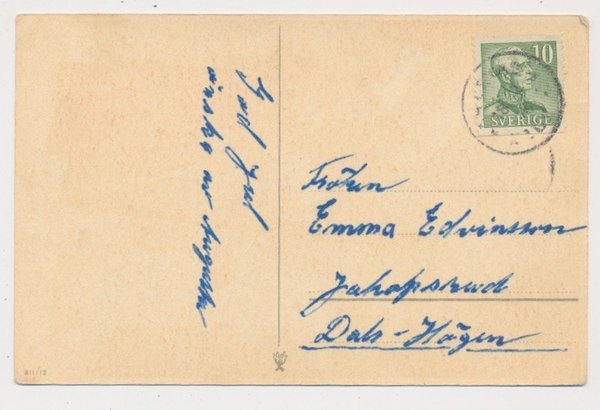 God Jul
önskar av Augusta
10
SVERIGE
Fröken
Emma Edvinsson
Jakopsrud
Dals-Högen
811/12